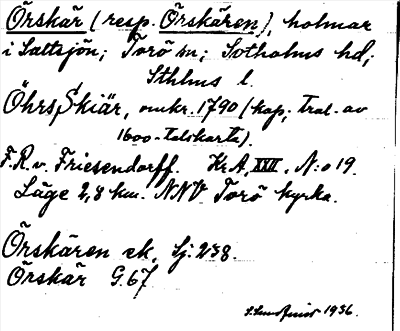 Örskär (resp. Örskären), holmar
i Saltsjön; Torö sn; Sotholms hd;
Sthlms l.
Öhrs Skiär, omkr. 1790 (kop. trol. av
1600-talskarta).
F.R. v. Friesendorff. Kr.A, XXII, N:o 19.
Läge 2,8 km. NNV Torö kyrka.
Örskären ek. Sj. 238.
Örskär G. 67
1936.